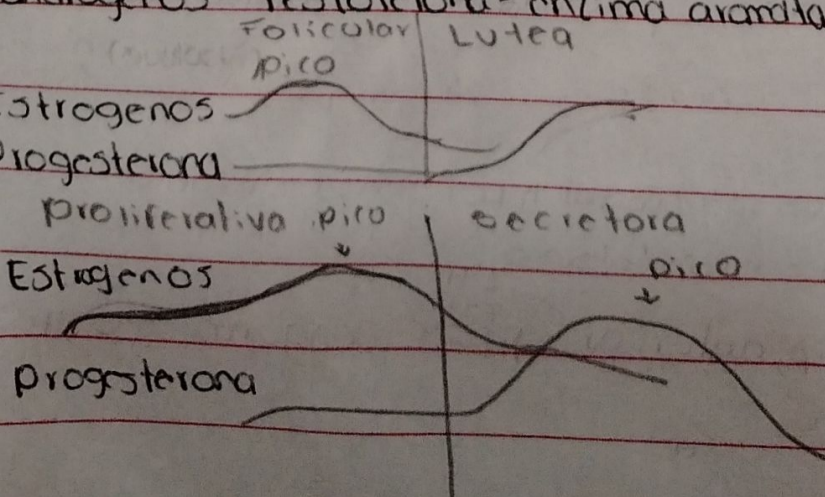 enzima aromata
Folicular Lutea
pico
Estrogenos
Progesterona
proliferativa pico secretora
Estrogenos pico
progesterona